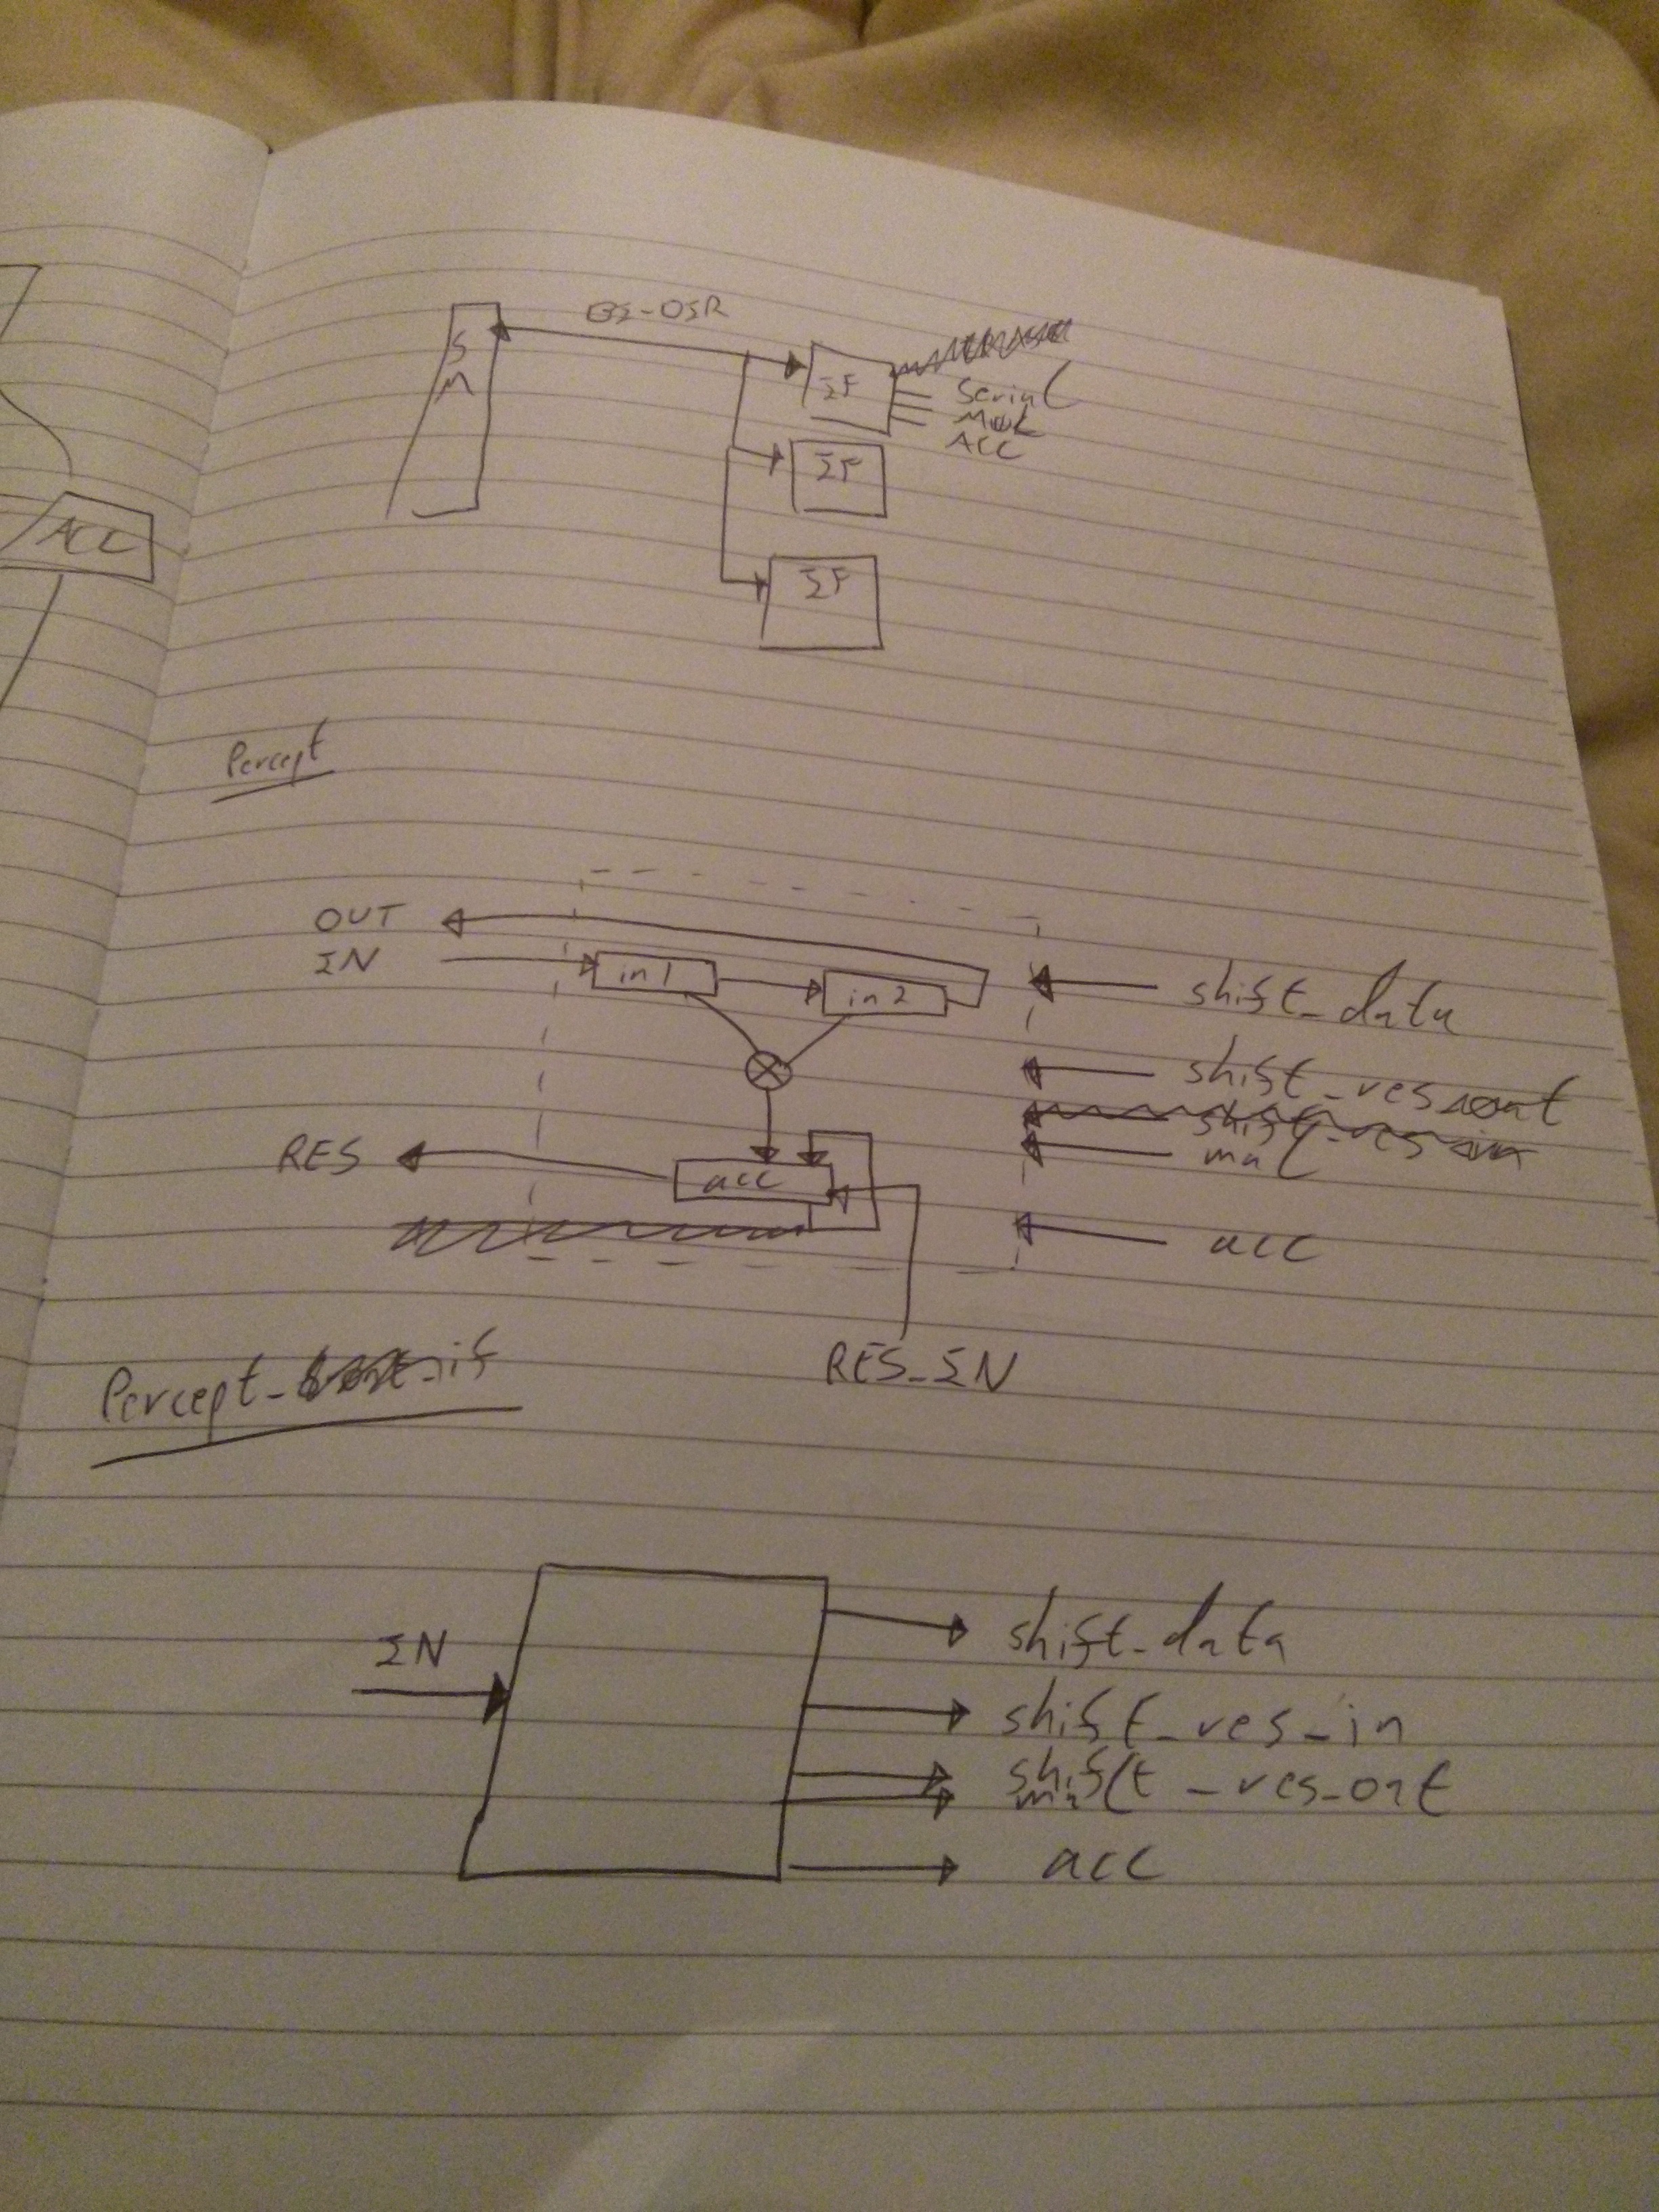 S
M
IF
Serial
Mul
ACC
IF
ACC
IF
Percept
OUT
IN
in1
in2
shift_data
shift_res_out
shift_res_in
mul
RES
acc
acc
RES_IN
Percept_if
IN
shift_data
shift_res_in
shift_res_out
acc